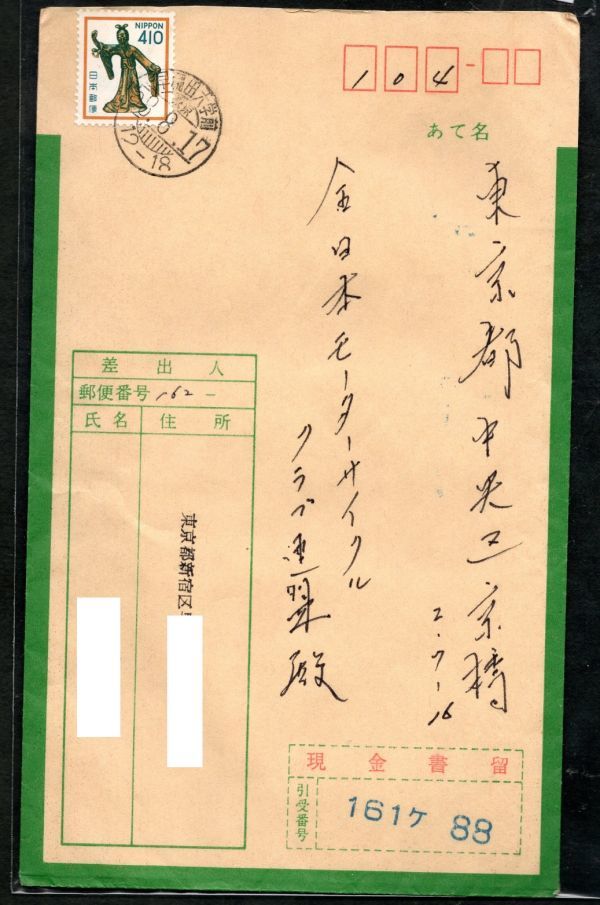 NIPPON
410
日本郵便
早稲田大学前
8.17
12-18
104
あて名
東京都中央区京橋
2-7-16
全日本モーターサイクル
クラブ連盟殿
差出人
郵便番号 162-
氏名 住所
東京都新宿区
現金書留
引受番号
161ケ 88